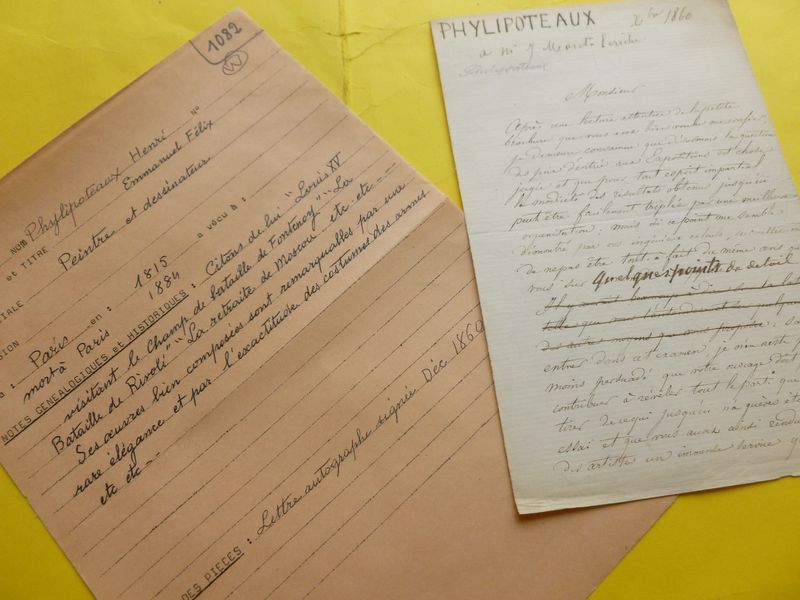 1082
W
NOM Phylipoteaux Henri N°
et TITRE Emmanuel Félix
Peintre et dessinateur
à : Paris en : 1815 a vécu à :
mort à Paris 1884
NOTES GENEALOGIQUES et HISTORIQUES : Citons de lui "Louis XV
visitant le champ de bataille de Fontenoy" "La
Bataille de Rivoli" "La retraite de Moscou etc etc --
Ses œuvres bien composées sont remarquables par une
rare élégance et par l'exactitude des costumes des armes.
etc etc --
DES PIECES : Lettre autographe signée Déc 1860
PHYLIPOTEAUX Xbre 1860
a Mr J
Monsieur
Après une lecture attentive de la petite
brochure que vous avez bien voulu me confier,
je demeure convaincu que désormais la question
du prix d'entrée aux Expositions est chose
jugée et que pour tout esprit impartial
la modicité des résultats obtenus jusqu'ici
peut être facilement triplée par une meilleure
organisation ; mais si ce point me semble
démontré par vos ingénieux calculs,
de ne pas être tout à fait du même avis que
vous sur quelques points de détail
entrer dans cet examen, je n'en reste pas
moins persuadé que votre ouvrage doit
contribuer à révéler tout le parti que
tirer de ce qui jusqu'ici n'a guères été
essai et que vous aurez ainsi rendu
des artistes un immense service